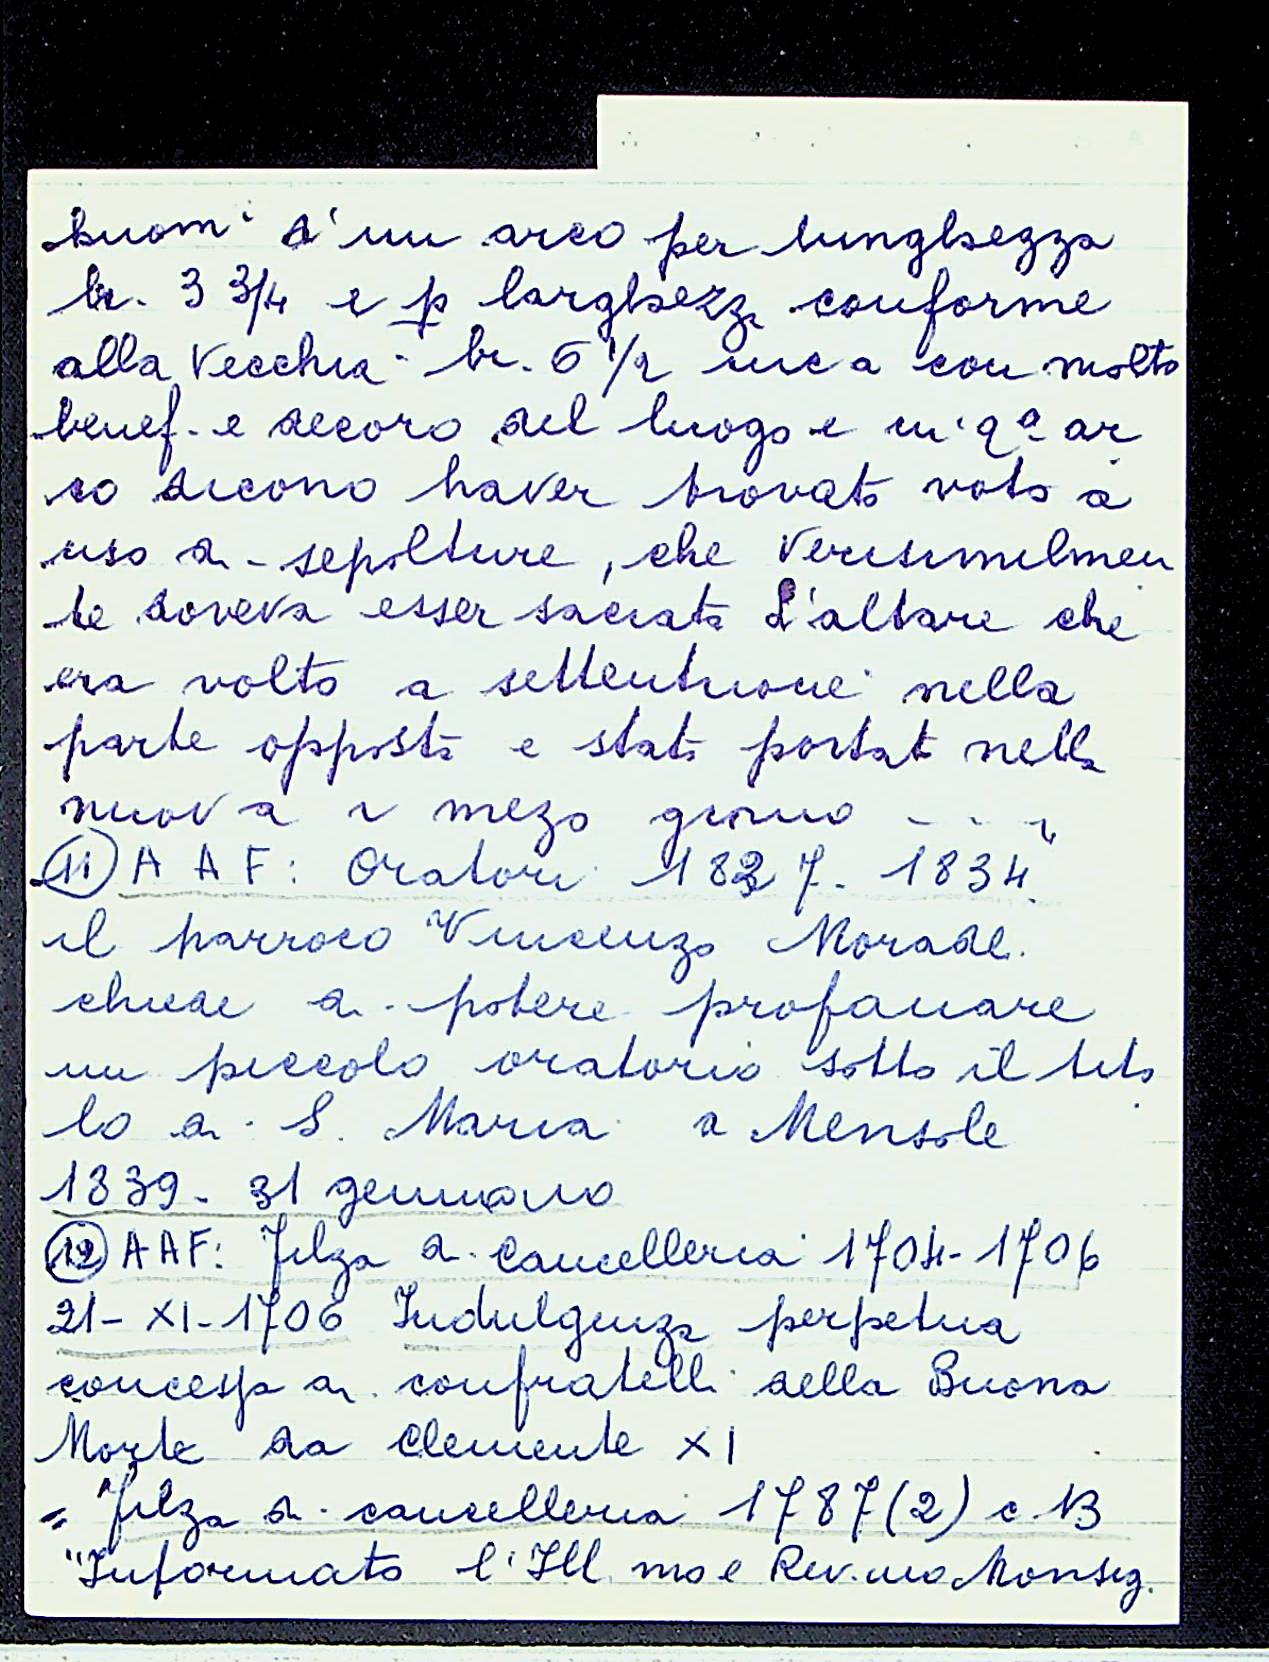 buoni d'un arco per lunghezza
br. 3 3/4 e p larghezza conforme
alla vecchia br. 6 1/2 inca con molto
benef. e decoro del luogo e in qa ar
co dicono haver trovato voto a
uso di sepolture, che verisimilmen
te doveva esser sacrata L'altare che
era volto a settentrione nella
parte opposta e stato portato nella
nuova a mezo giorno - - - "
(11) A A F: Oratori 1827 - 1834
il parroco Vincenzo Moradei
chiede di potere profanare
un piccolo oratorio sotto il tito
lo di S. Maria a Mensole
1839 - 31 gennaio
(12) A A F: Filza di Cancelleria 1704-1706
21-XI-1706 Indulgenza perpetua
concessa ai confratelli della Buona
Morte da Clemente XI
= Filza di cancelleria 1787 (2) c 13
"Informato l'Ill.mo e Rev.mo Monsig.